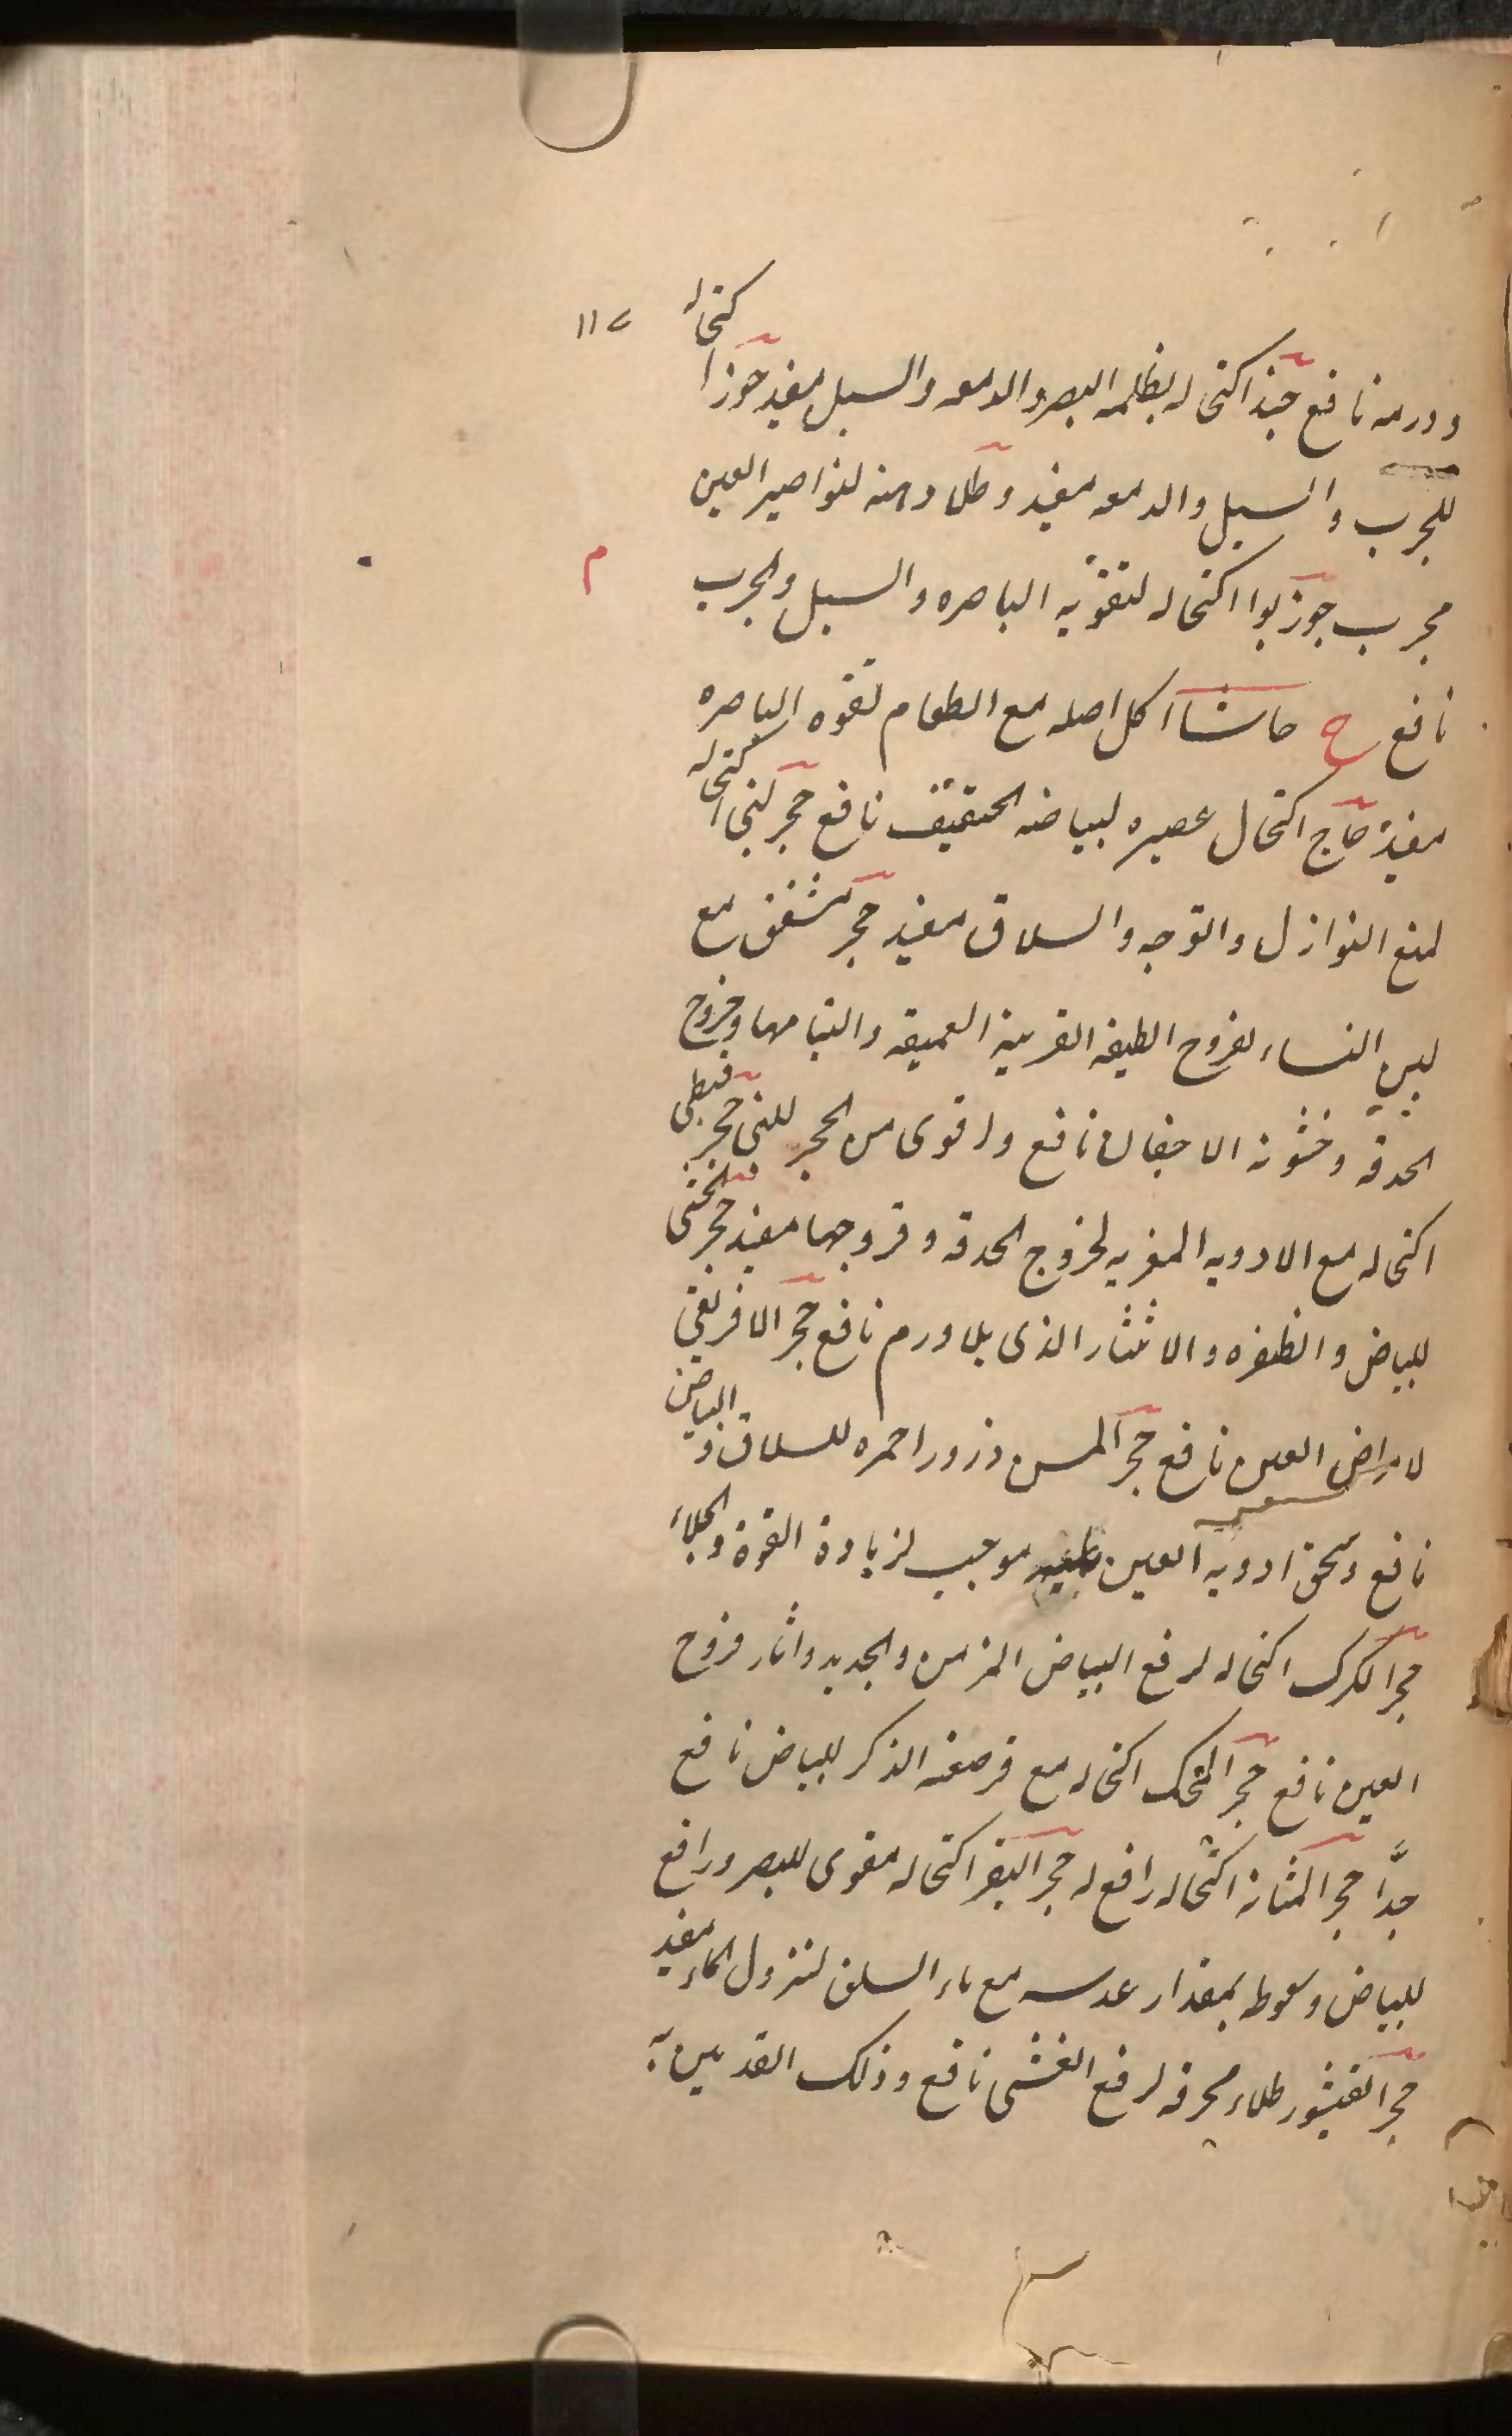 ١١٧
وورمه نافع جند اكتحاله بظلمه البصر والدمعه والسبل مفيد جوزا كتحاله
للجرب والسبل والدمعه مفيد وطلا دهنه لنواصير العين
مجرب جوزبوا اكتحاله لتقويه الباصره والسبل والجرب
م
نافع ح حاشا اكل اصله مع الطعام لقوه الباصره
مفيد حاج اكتحال عصيره لبياضه الحقيقى نافع حجر لبنى اكتحاله
لمنع النوازل والتوجه والسلاق مفيد حجر مشقق مع
لبن النساء لقروح الطبقه القرنية العميقه والتيامها وخروج
الحدقه وخشونه الاجفان نافع واقوى من الحجر اللبنى حجر قبطى
اكتحاله مع الادويه المغريه لخروج الحدقه وقروحها مفيد حجر
للبياض والظفره والانتثار الذى بلا ورم نافع حجر الافريقى
لامراض العين نافع حجر المسن ذرور احمره للسلاق والبياض
نافع وسحق ادويه العين موجب لزيادة القوة والجلاء
حجر الكرك اكتحاله لرفع البياض المزمن والجديد واثار قروح
العين نافع حجر المحك اكتحاله مع الذكر للبياض نافع
جدًا حجر المثانه اكتحاله رافع له حجر البقر اكتحاله مقوى للبصر ورافع
للبياض وسعوطه بمقدار عدسه مع ماء السلق لنزول الماء مفيد
حجر القيشور طلاء محرقه لرفع الغشى نافع وذلك القدمين به